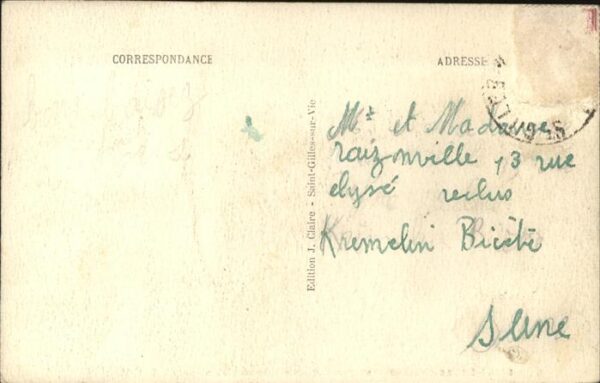 CORRESPONDANCE
ADRESSE
Edition J. Claire - Saint-Gilles-sur-Vie
Mr et Madame
raizonville 13 rue
elysé reclus
Kremelin Bicète
Seine